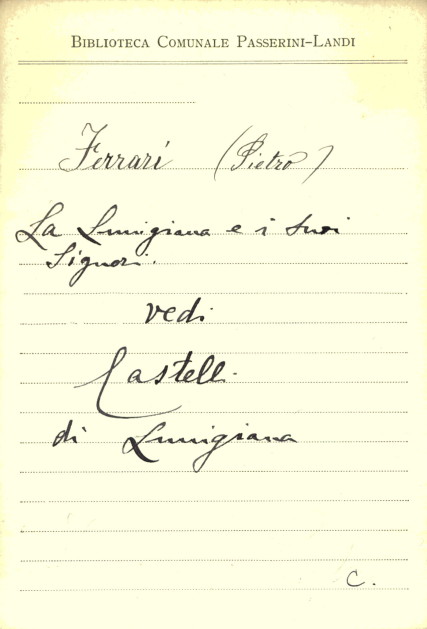 BIBLIOTECA COMUNALE PASSERINI-LANDI
Ferrari (Pietro)
La Lunigiana e i suoi
Signori.
vedi
Castelli
di Lunigiana
C.